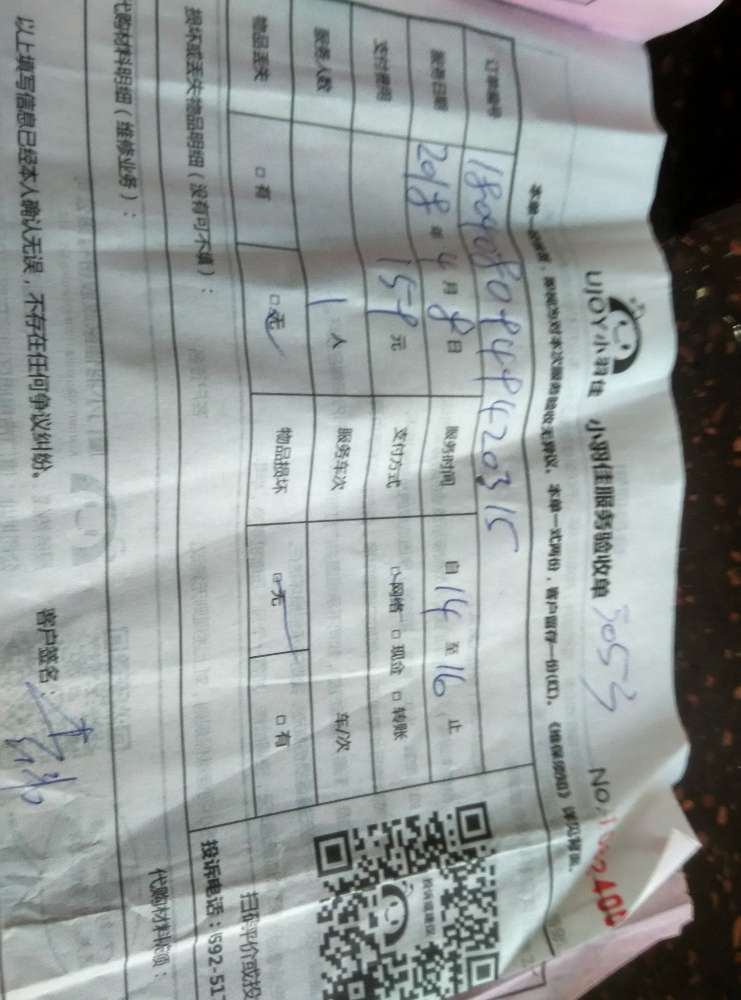 UJOY小羽佳 小羽佳服务验收单 3053
本单一式两份，客户留存一份(红)。《维保须知》详见背面。
订单编号 180408094849420315
服务日期 2018 年 4 月 8 日 服务时间 自 14 至 16 止
支付费用 159 元 支付方式 □ 网络 □ 现金 □ 转账
服务人数 1 人 服务车次 车/次
物品丢失 □ 有 □ 无 物品损坏 □ 无 □ 有
损坏或丢失物品明细（没有可不填）：
扫码评价或投
投诉电话：(592-517
代购材料明细（维修业务）：
代购材料款项：
以上填写信息已经本人确认无误，不存在任何争议纠纷。
客户签名：